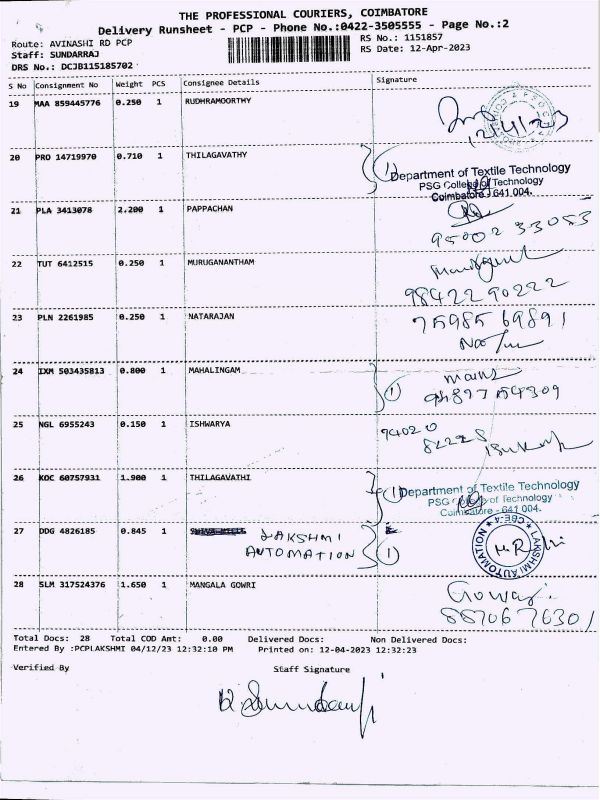 THE PROFESSIONAL COURIERS, COIMBATORE
Delivery Runsheet - PCP - Phone No.:0422-3505555 - Page No.:2
Route: AVINASHI RD PCP
RS No.: 1151857
Staff: SUNDARRAJ
RS Date: 12-Apr-2023
DRS No.: DCJB115185702
S No Consignment No Weight PCS Consignee Details Signature
19 MAA 859445776 0.250 1 RUDHRAMOORTHY
12/4/23
20 PRO 14719970 0.710 1 THILAGAVATHY
1) Department of Textile Technology
PSG College of Technology
Coimbatore - 641 004.
21 PLA 3413078 2.200 1 PAPPACHAN
95002 33053
22 TUT 6412515 0.250 1 MURUGANANTHAM
98422 90222
23 PLN 2261985 0.250 1 NATARAJAN
75985 69891
24 IXM 503435813 0.800 1 MAHALINGAM
1
25 NGL 6955243 0.150 1 ISHWARYA
94020
82228
26 KOC 60757931 1.900 1 THILAGAVATHI
1) Department of Textile Technology
PSG College of Technology
Coimbatore - 641 004.
27 DDG 4826185 0.845 1 LAKSHMI
AUTOMATION
1
LAKSHMI AUTOMATION * CBE-4 *
28 SLM 317524376 1.650 1 MANGALA GOWRI
Gowri
8870676301
Total Docs: 28 Total COD Amt: 0.00 Delivered Docs: Non Delivered Docs:
Entered By :PCPLAKSHMI 04/12/23 12:32:10 PM Printed on: 12-04-2023 12:32:23
Verified By Staff Signature